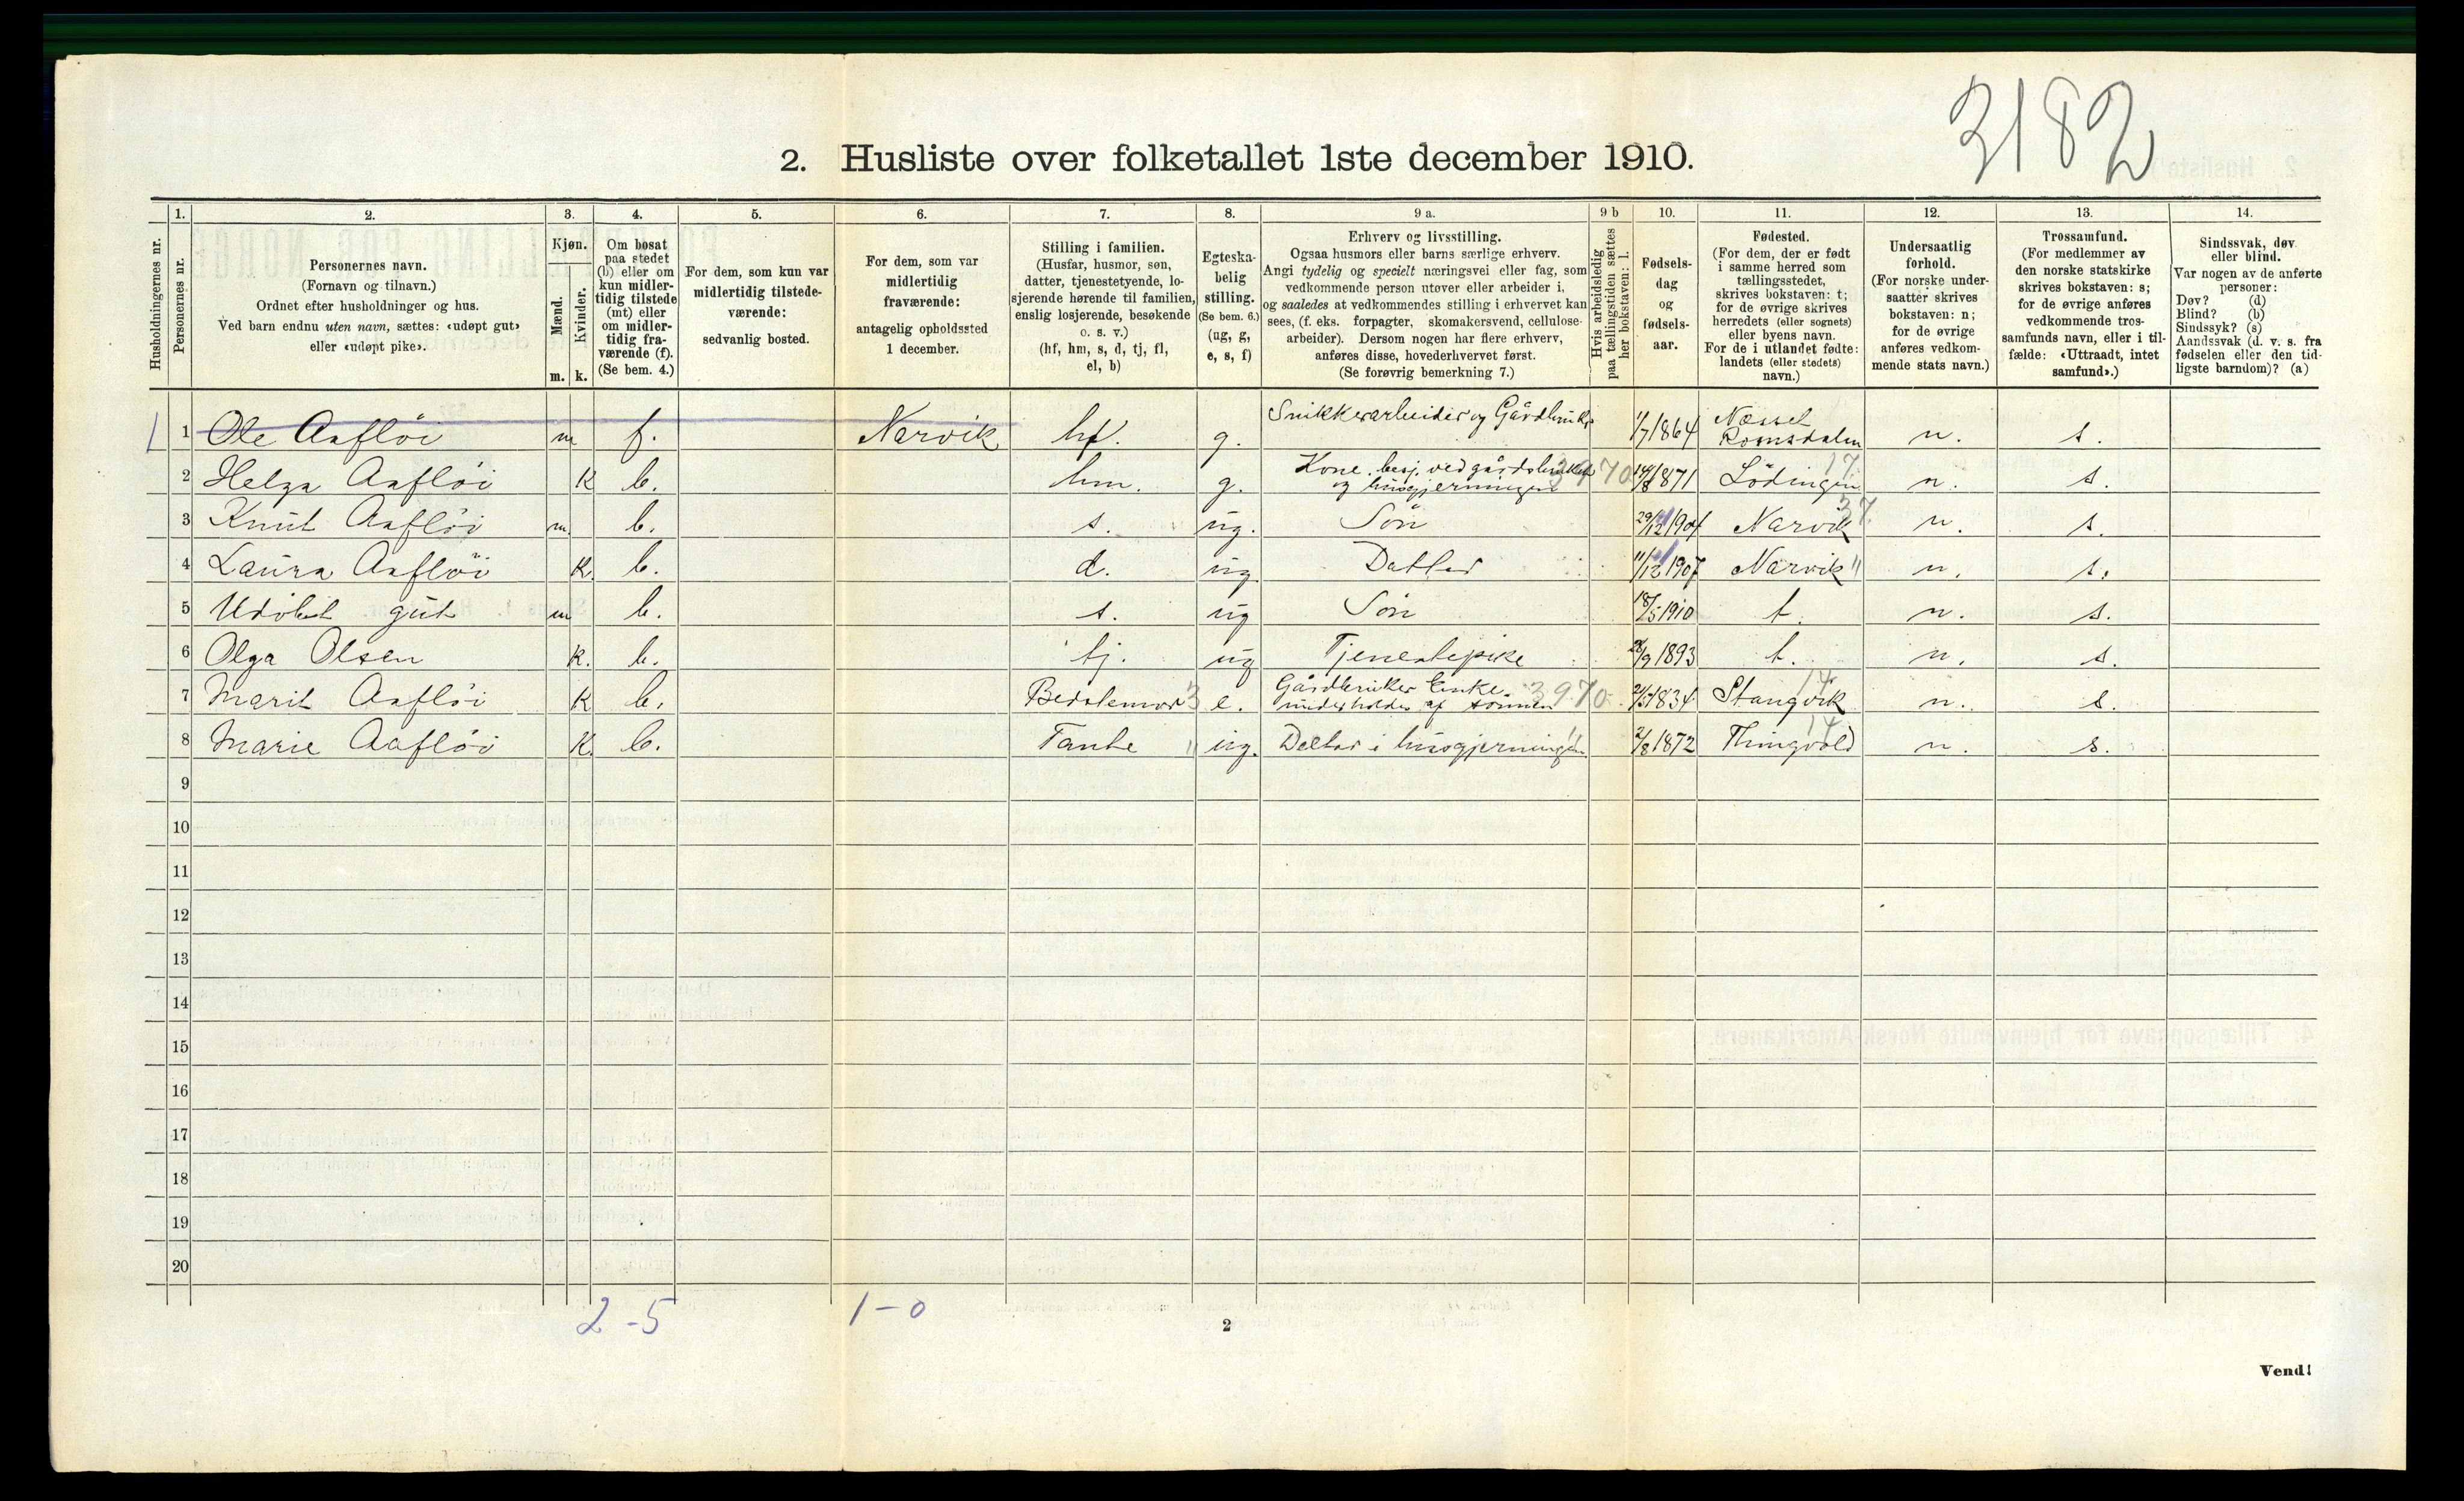 3182
2. Husliste over folketallet 1ste december 1910.
Husholdningernes nr.
1.
Personernes nr.
2.
Personernes navn.
(Fornavn og tilnavn.)
Ordnet efter husholdninger og hus.
Ved barn endnu uten navn, sættes: «udøpt gut»
eller «udøpt pike».
3.
Kjøn.
Mænd.
Kvinder.
m. k.
4.
Om bosat
paa stedet
(b) eller om
kun midler-
tidig tilstede
(mt) eller
om midler-
tidig fra-
værende (f).
(Se bem. 4.)
5.
For dem, som kun var
midlertidig tilstede-
værende:
sedvanlig bosted.
6.
For dem, som var
midlertidig
fraværende:
antagelig opholdssted
1 december.
7.
Stilling i familien.
(Husfar, husmor, søn,
datter, tjenestetyende, lo-
sjerende hørende til familien,
enslig losjerende, besøkende
o. s. v.)
(hf, hm, s, d, tj, fl,
el, b)
8.
Egteska-
belig
stilling.
(Se bem. 6.)
(ug, g,
e, s, f)
9 a.
Erhverv og livsstilling.
Ogsaa husmors eller barns særlige erhverv.
Angi tydelig og specielt næringsvei eller fag, som
vedkommende person utøver eller arbeider i,
og saaledes at vedkommendes stilling i erhvervet kan
sees, (f. eks. forpagter, skomakersvend, cellulose-
arbeider). Dersom nogen har flere erhverv,
anføres disse, hovederhvervet først.
(Se forøvrig bemerkning 7.)
9 b
Hvis arbeidsledig
paa tællingstiden sættes
her bokstaven: l.
10.
Fødsels-
dag
og
fødsels-
aar.
11.
Fødested.
(For dem, der er født
i samme herred som
tællingsstedet,
skrives bokstaven: t;
for de øvrige skrives
herredets (eller sognets)
eller byens navn.
For de i utlandet fødte:
landets (eller stedets)
navn.)
12.
Undersaatlig
forhold.
(For norske under-
saatter skrives
bokstaven: n;
for de øvrige
anføres vedkom-
mende stats navn.)
13.
Trossamfund.
(For medlemmer av
den norske statskirke
skrives bokstaven: s;
for de øvrige anføres
vedkommende tros-
samfunds navn, eller i til-
fælde: «Uttraadt, intet
samfund».)
14.
Sindssvak, døv
eller blind.
Var nogen av de anførte
personer:
Døv? (d)
Blind? (b)
Sindssyk? (s)
Aandssvak (d. v. s. fra
fødselen eller den tid-
ligste barndom)? (a)
1 1 Ole Aafløi m f. Narvik hf. g. Snikkerarbeider og Gårdbruker 1/7 1864 Næsset Romsdalen n. s.
2 Helga Aafløi k b. hm. g. Kone, besj. ved gårdsbruket og husgjerningen 3970 14/8 1871 Lödingen 17 n. s.
3 Knut Aafløi m. b. s. ug. Sön 29/12 1904 Narvik 37 n. s.
4 Laura Aafløi k. b. d. ug. Datter 11/12 1907 Narvik " n. s.
5 Udöbt gut m b. s. ug Sön 18/5 1910 t. n. s.
6 Olga Olsen k. b. tj. ug Tjenestepike 28/9 1893 t. n. s.
7 Marit Aafløi k b. Bedstemor 3 e. Gårdbruker Enke. underholdes af sönnen 3970 2/5 1834 Stangvik 14 n. s.
8 Marie Aafløi k. b. Tante " ug. Deltar i husgjerningen " 2/8 1872 Thingvold 14 n. s.
9
10
11
12
13
14
15
16
17
18
19
20
2 - 5 1 - 0
2
Vend!